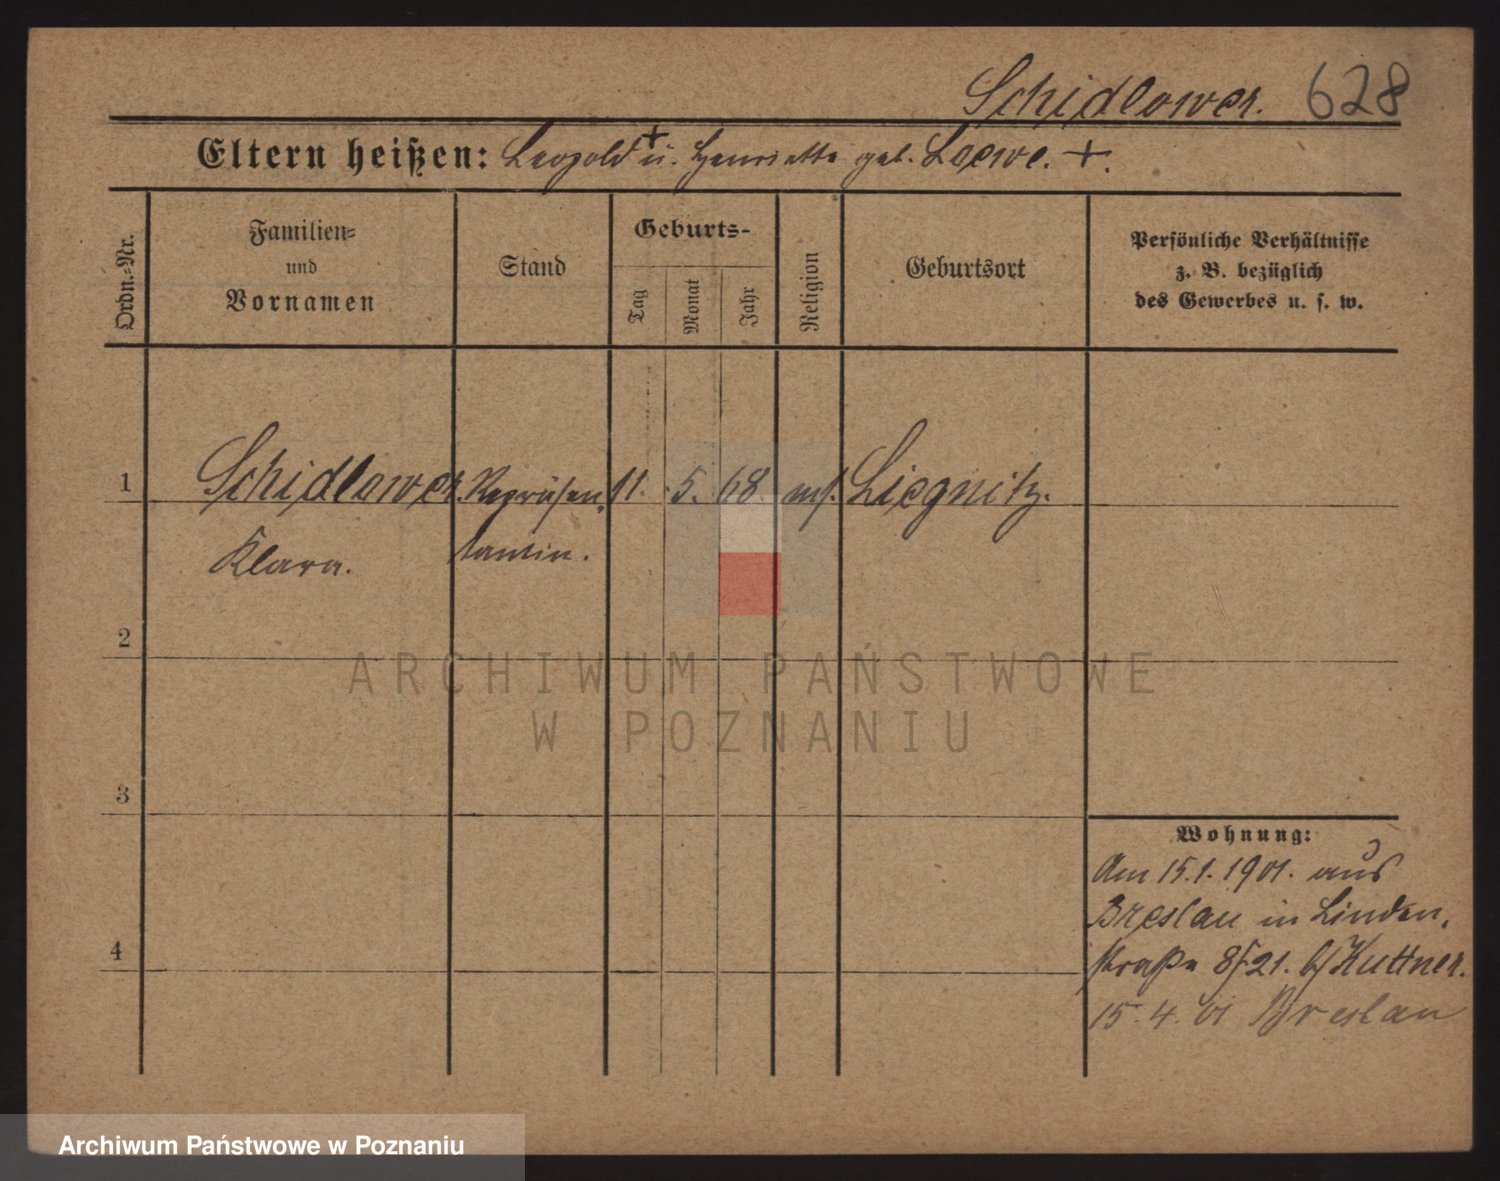 Schidlower. 628
Eltern heißen: Leopold + u. Henriette geb. Loewe. +.
Ordn.=Nr.
Familien=
und
Vornamen
Stand
Geburts-
Tag
Monat
Jahr
Religion
Geburtsort
Persönliche Verhältnisse
z. B. bezüglich
des Gewerbes u. s. w.
1 Schidlower Repräsen, 11. 5. 68 Liegnitz.
Klara. tantin.
2
ARCHIWUM PAŃSTWOWE
W POZNANIU
3
Wohnung:
Am 15.1.1901. aus
Breslau in Linden,
4
straße 8 21. b/Kuttner.
15.4.01 Breslau
Archiwum Państwowe w Poznaniu